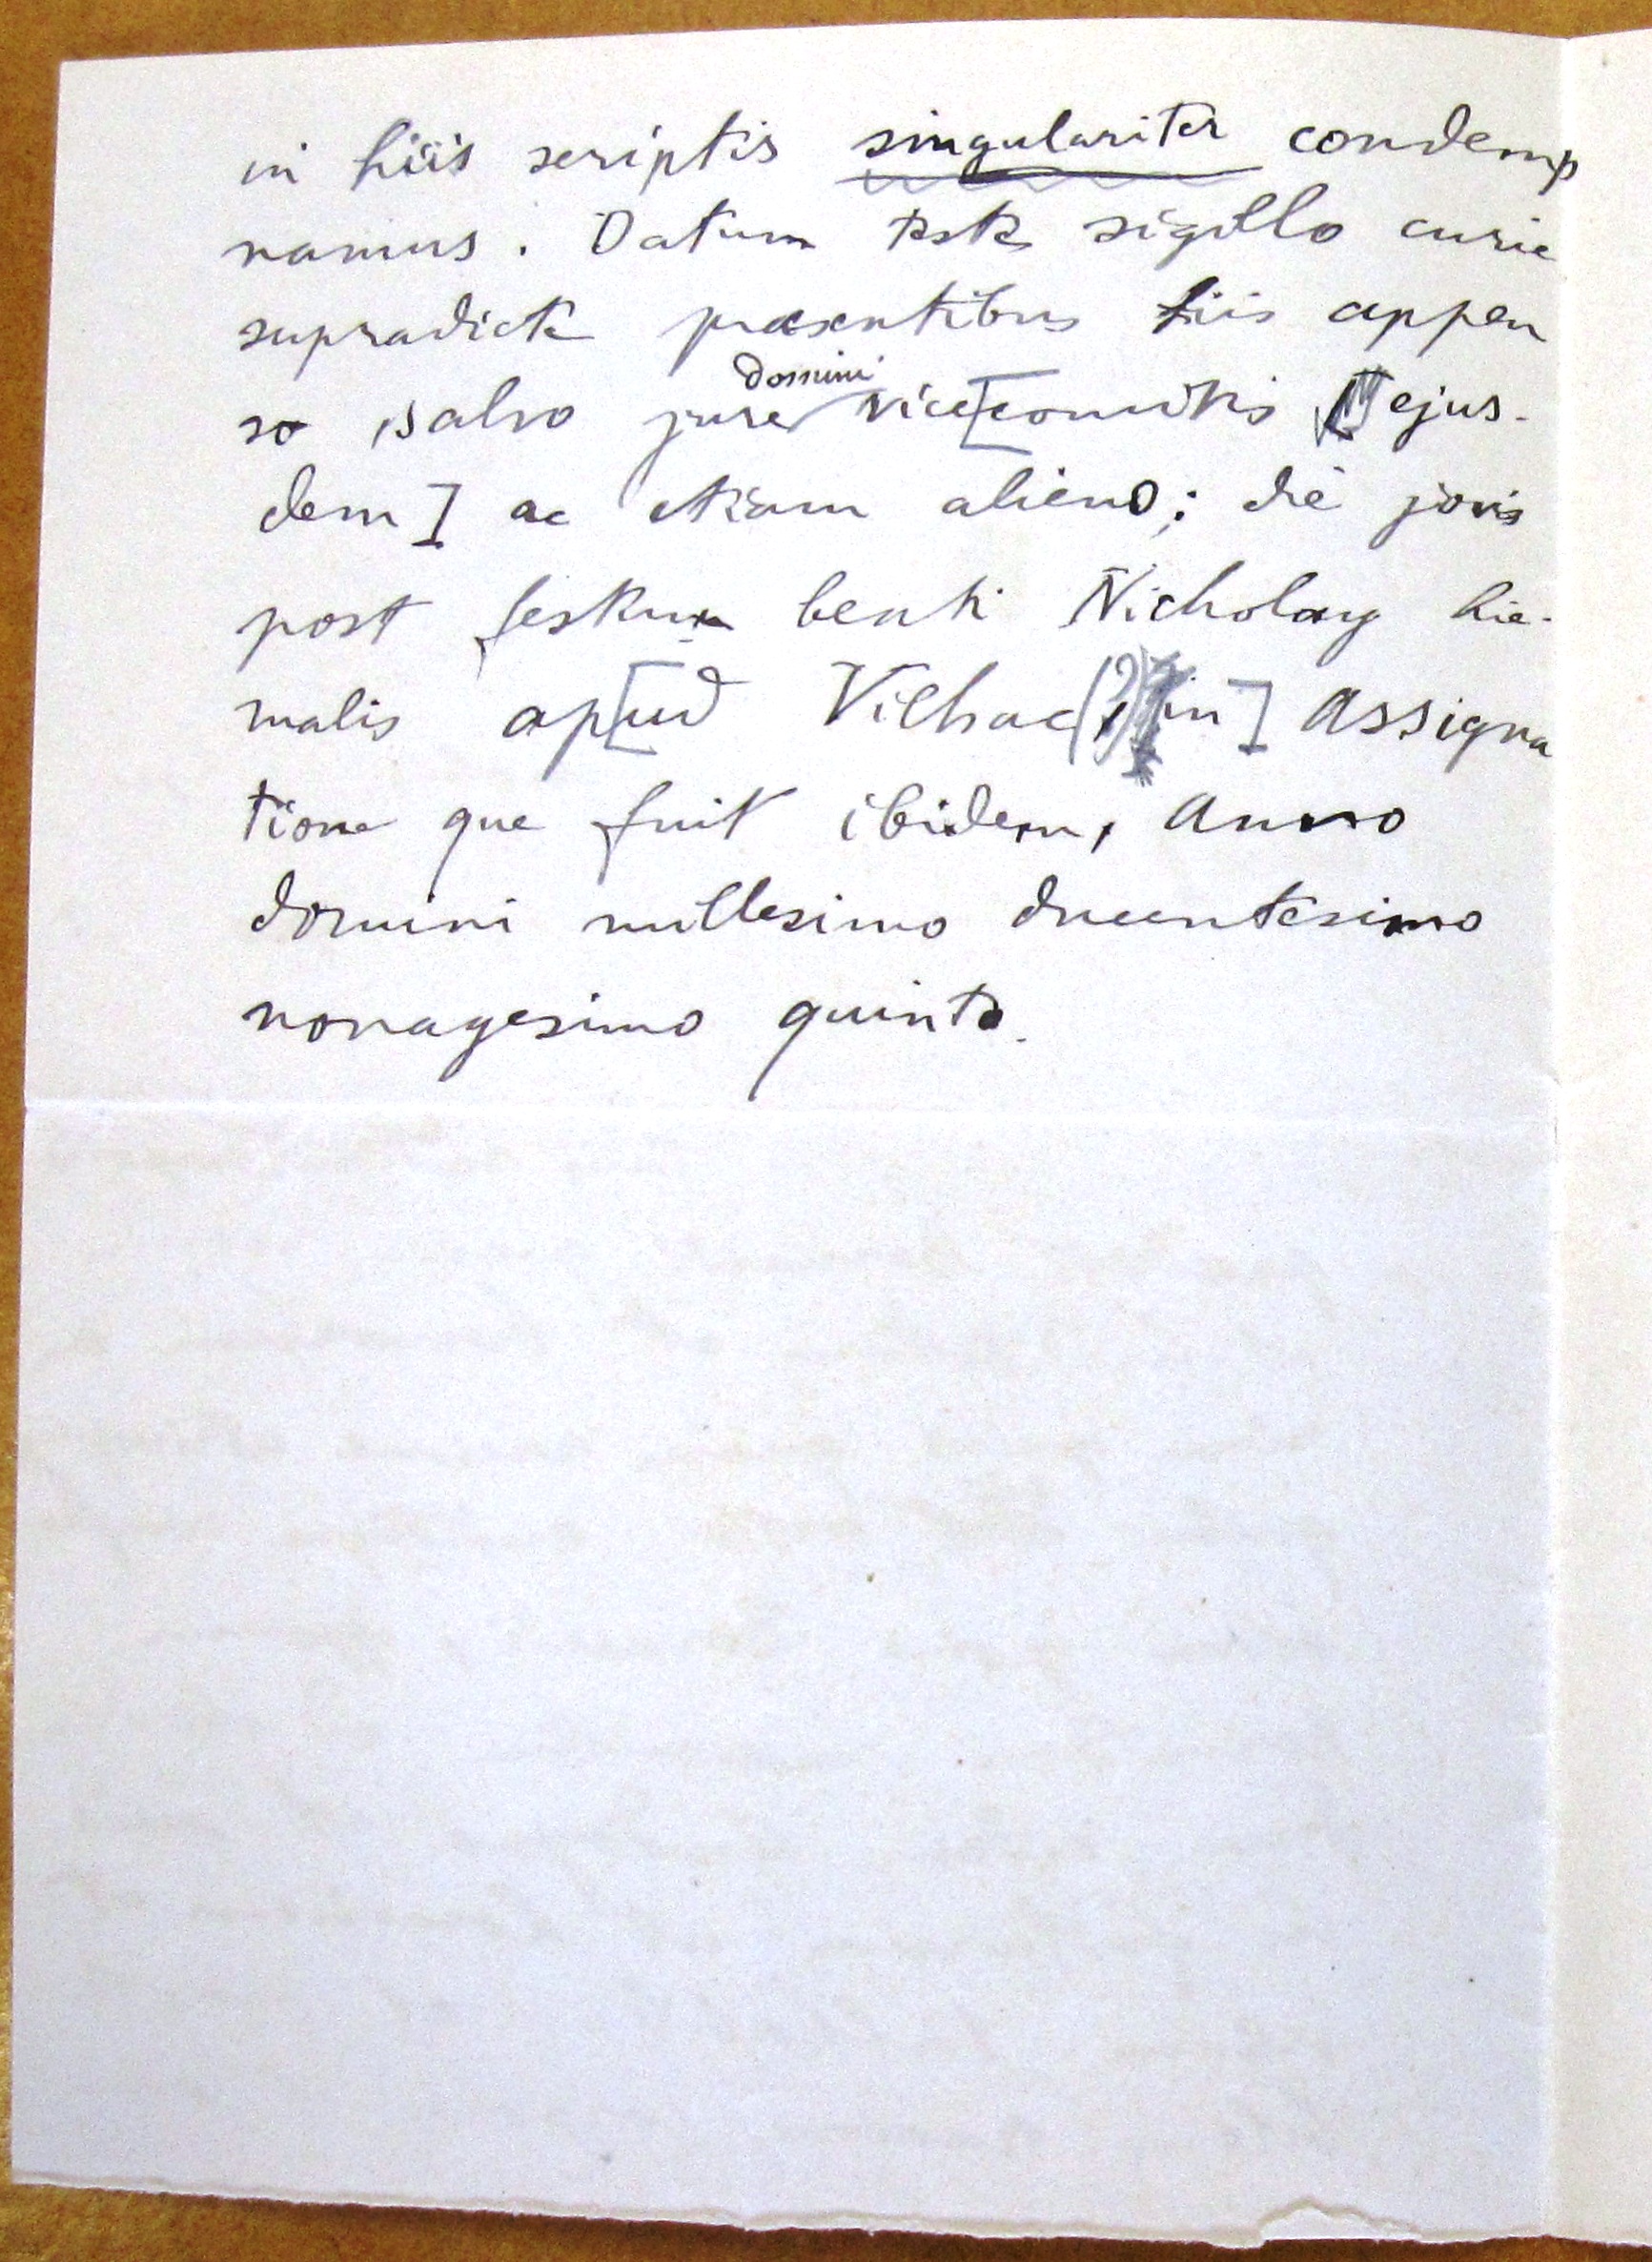 in hiis scriptis singulariter condemp
namus. Datum teste sigillo curie
supradicte presentibus hiis appen
so salvo jure domini vice[comitis ejus-
dem] ac etiam alieno; die jovis
post festum beati Nicholay hie-
malis ap[ud Vilhac(?) in] assigna
tione que fuit ibidem, anno
domini millesimo ducentesimo
nonagesimo quinto.